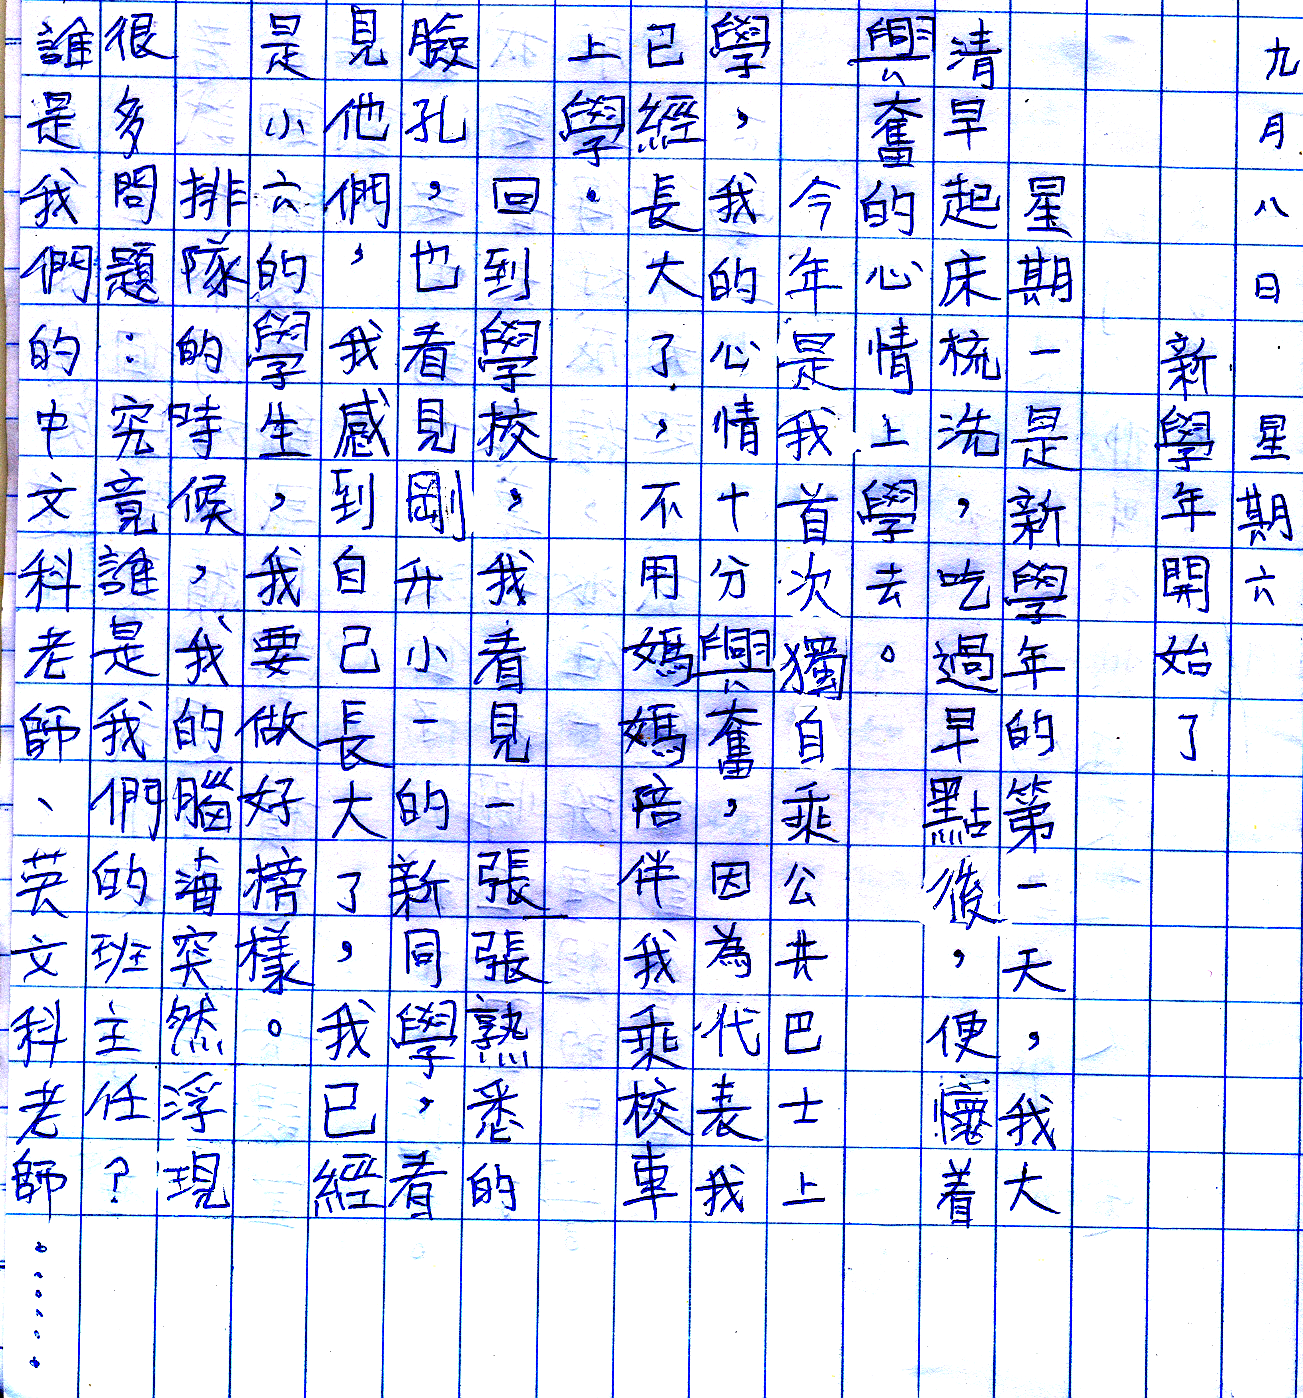 九月八日 星期六
新學年開始了
星期一是新學年的第一天，我大
清早起床梳洗，吃過早點後，便懷着
興奮的心情上學去。
今年是我首次獨自乘公共巴士上
學，我的心情十分興奮，因為代表我
已經長大了，不用媽媽陪伴我乘校車
上學。
回到學校，我看見一張張熟悉的
臉孔，也看見剛升小一的新同學，看
見他們，我感到自己長大了，我已經
是小六的學生，我要做好榜樣。
排隊的時候，我的腦海突然浮現
很多問題：究竟誰是我們的班主任？
誰是我們的中文科老師、英文科老師……